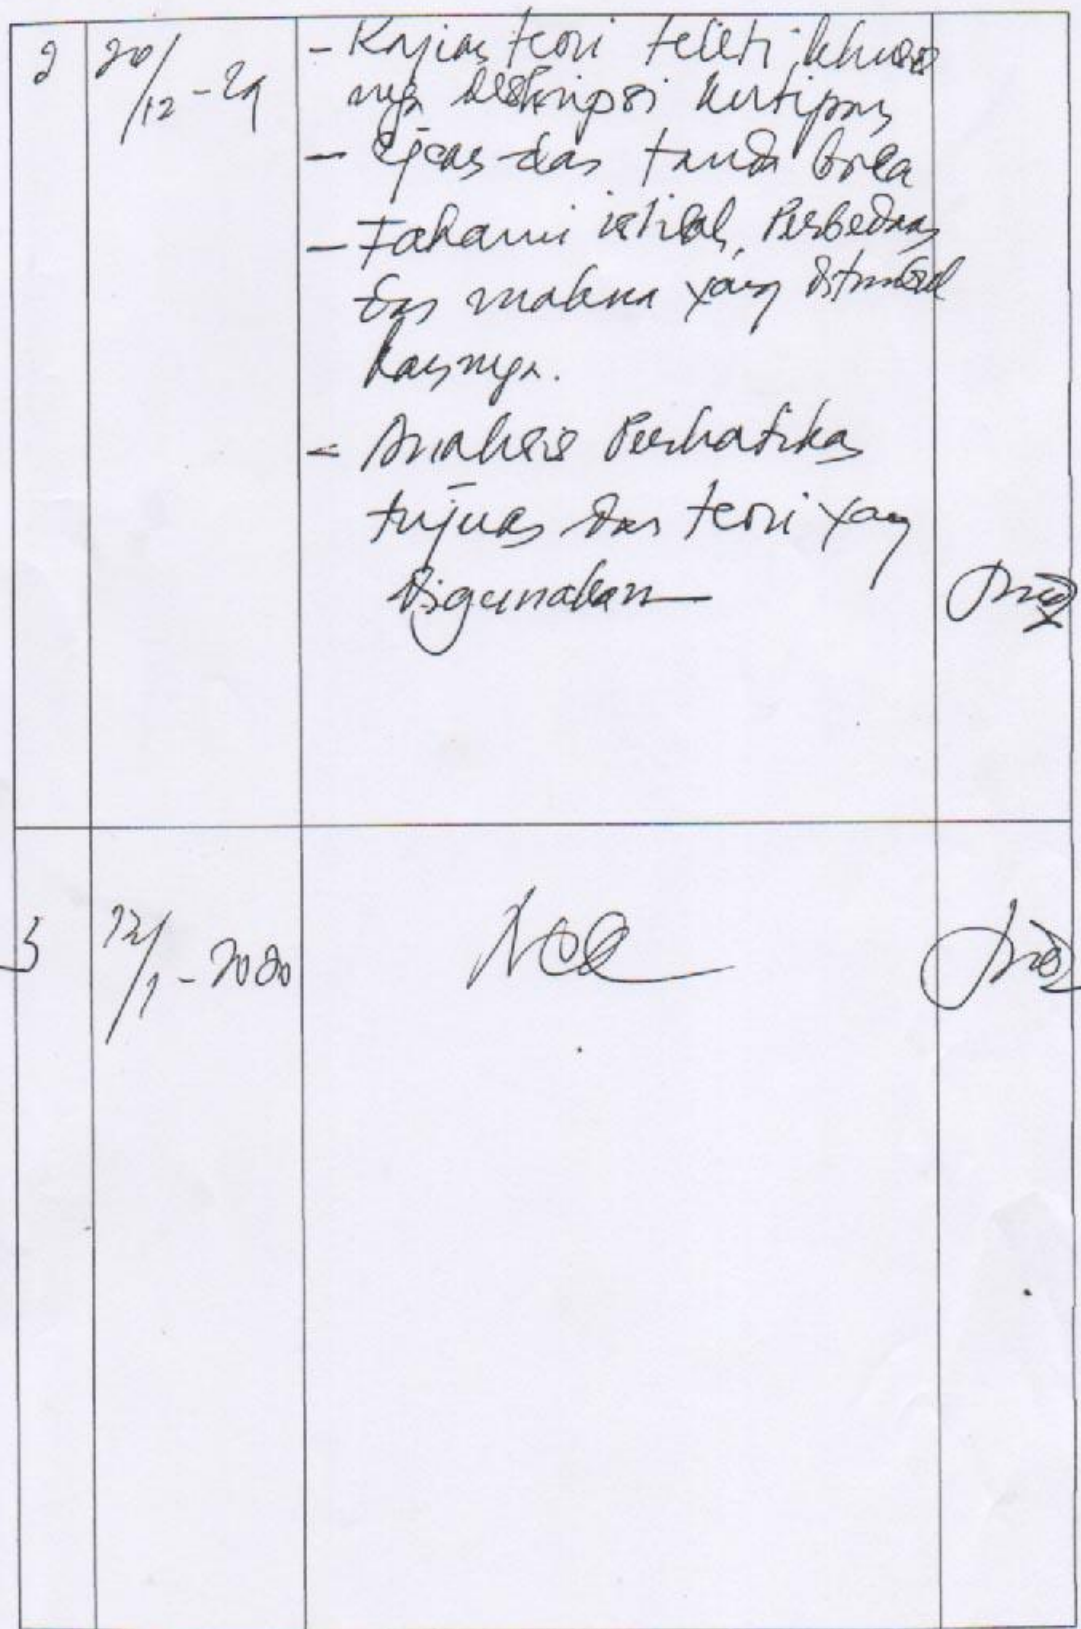 2 20/12-29 - Kajian teori teliti, khusus
nya deskripsi kutipan
- Ejaan dan tanda baca
- Fahami istilah, Perbedaan
dan makna yang ditimbul
kannya.
- Analisis Perhatikan
tujuan dan teori yang
digunakan
3 12/1-2020 Acc